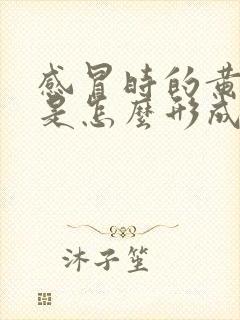 感冒時的黄
是怎麼形成
沐子笙